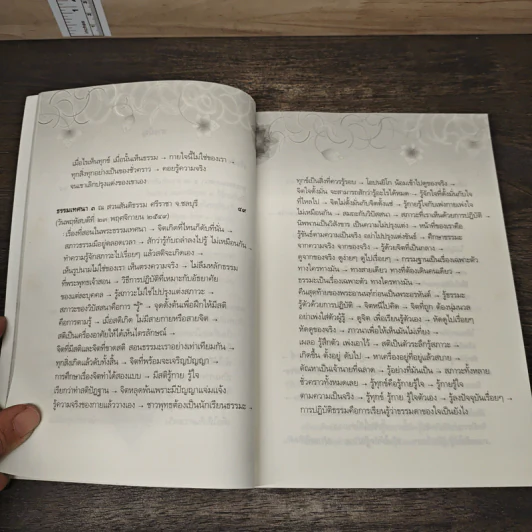 เมื่อไหเห็นทุกข์ เมื่อนั้นเห็นธรรม → กายใจนี้ไม่ใช่ของเรา →
ทุกสิ่งทุกอย่างเป็นของชั่วคราว → คอยรู้ความจริง
จนเขาเลิกปรุงแต่งของเขาเอง
ธรรมเทศนา ๓ ณ สวนสันติธรรม ศรีราชา จ.ชลบุรี ๔๙
(วันพฤหัสบดีที่ ๒๓ พฤศจิกายน ๒๕๔๙)
เรื่องที่สอนในพระธรรมเทศนา → จิตเกิดที่ไหนก็ดับที่นั่น →
สภาวธรรมมีอยู่ตลอดเวลา → สักว่ารู้กับถลำลงไปรู้ ไม่เหมือนกัน
ทำความรู้จักสภาวะไปเรื่อยๆ แล้วสติจะเกิดเอง →
เห็นรูปนามไม่ใช่ของเรา เห็นตรงความจริง → ไม่ลืมหลักธรรม
ที่พระพุทธเจ้าสอน → วิธีการปฏิบัติที่เหมาะกับอัธยาศัย
ของแต่ละบุคคล → รู้สภาวะไม่ใช่ไปปรุงแต่งสภาวะ →
สภาวะของวิปัสสนาคือการ "รู้" → จุดตั้งต้นเพื่อฝึกให้มีสติ
คือการตามรู้ → เมื่อสติเกิด ไม่มีสายกายหรือสายจิต →
สติเป็นเครื่องอาศัยให้ได้เห็นไตรลักษณ์ →
จิตที่มีสติและจิตที่ขาดสติ สอนธรรมะเราอย่างเท่าเทียมกัน →
ทุกสิ่งเกิดแล้วดับทั้งสิ้น → จิตที่พร้อมจะเจริญปัญญา →
การศึกษาเรื่องจิตทำได้สองแบบ → มีสติรู้กาย รู้ใจ
เรียกว่าทำสติปัฏฐาน → จิตหลุดพ้นเพราะมีปัญญาแจ่มแจ้ง
รู้ความจริงของกายแล้ววางเอง → ชาวพุทธต้องเป็นนักเรียนธรรมะ →
ทุกข์เป็นสิ่งที่ควรรู้รอบ → โอปนยิโก น้อมเข้าไปดูของจริง →
จิตใจตั้งมั่น จะสามารถสักว่ารู้อะไรได้หมด → รู้จักใจที่ตั้งมั่นกับใจ
ที่ไหลไป → จิตไม่ตั้งมั่นกับจิตตั้งแช่ → รู้กายรู้ใจกับเพ่งกายเพ่งใจ
ไม่เหมือนกัน → สมถะกับวิปัสสนา → สภาวะที่เราเห็นด้วยการปฏิบัติ →
นิพพานเป็นวิสังขาร เป็นความไม่ปรุงแต่ง → หน้าที่ของเราคือ
รู้ขันธ์ตามความเป็นจริง อย่าไปปรุงแต่งขันธ์ → ศึกษาธรรมะ
จากความจริง จากของจริง → รู้ด้วยจิตที่เป็นกลาง →
ดูจากของจริง ดูง่ายๆ ดูไปเรื่อยๆ → กรรมฐานเป็นเรื่องเฉพาะตัว
ทางใครทางมัน → ทางสายเดียว ทางที่ต้องเดินคนเดียว →
ธรรมะเป็นเรื่องเฉพาะตัว ทางใครทางมัน →
คืนสุดท้ายของพระอานนท์ก่อนเป็นพระอรหันต์ → รู้ธรรมะ
รู้ตัวด้วยการปฏิบัติ → จิตหนีไปคิด → จิตที่ถูก ต้องนุ่มนวล
อย่าเพ่งใส่ตัวผู้รู้ → ดูจิต เพื่อเรียนรู้ตัวเอง → หัดดูไปเรื่อยๆ
หัดดูของจริง → ภาวนาเพื่อให้เห็นมันไม่เที่ยง →
เผลอ รู้สึกตัว เพ่งเอาไว้ → สติเป็นตัวระลึกรู้สภาวะ →
เกิดขึ้น ตั้งอยู่ ดับไป → หาเครื่องอยู่ที่อยู่แล้วสบาย →
ตัณหาเป็นเจ้านายที่ฉลาด → รู้อย่างที่มันเป็น → สภาวะทั้งหลาย
ชั่วคราวทั้งหมดเลย → รู้ทุกข์คือรู้กายรู้ใจ → รู้กายรู้ใจ
ตามความเป็นจริง → รู้ทุกข์ รู้กาย รู้ใจตัวเอง → รู้ลงปัจจุบันเรื่อยๆ →
การปฏิบัติธรรมคือการเรียนรู้ว่าธรรมดาของใจเป็นยังไง